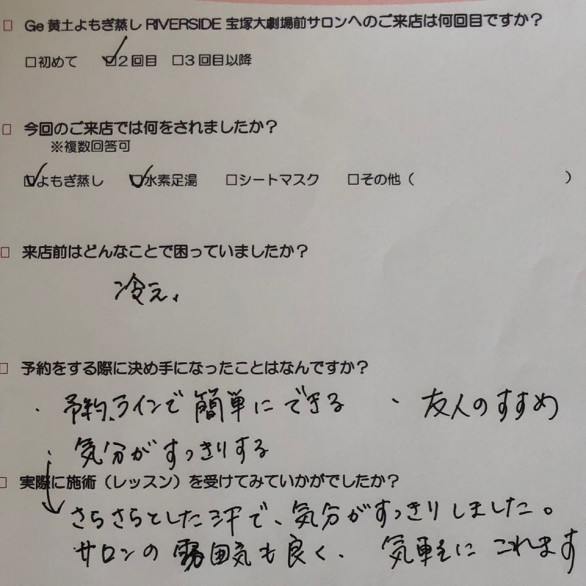 □ Ge 黄土よもぎ蒸し RIVERSIDE 宝塚大劇場前サロンへのご来店は何回目ですか？
□初めて ☑2回目 □3回目以降
□ 今回のご来店では何をされましたか？
※複数回答可
☑よもぎ蒸し ☑水素足湯 □シートマスク □その他（ ）
□ 来店前はどんなことで困っていましたか？
冷え、
□ 予約をする際に決め手になったことはなんですか？
・予約、ラインで簡単にできる ・友人のすすめ
・気分がすっきりする
□ 実際に施術（レッスン）を受けてみていかがでしたか？
さらさらとした汗で、気分がすっきりしました。
サロンの雰囲気も良く、気軽にこれます